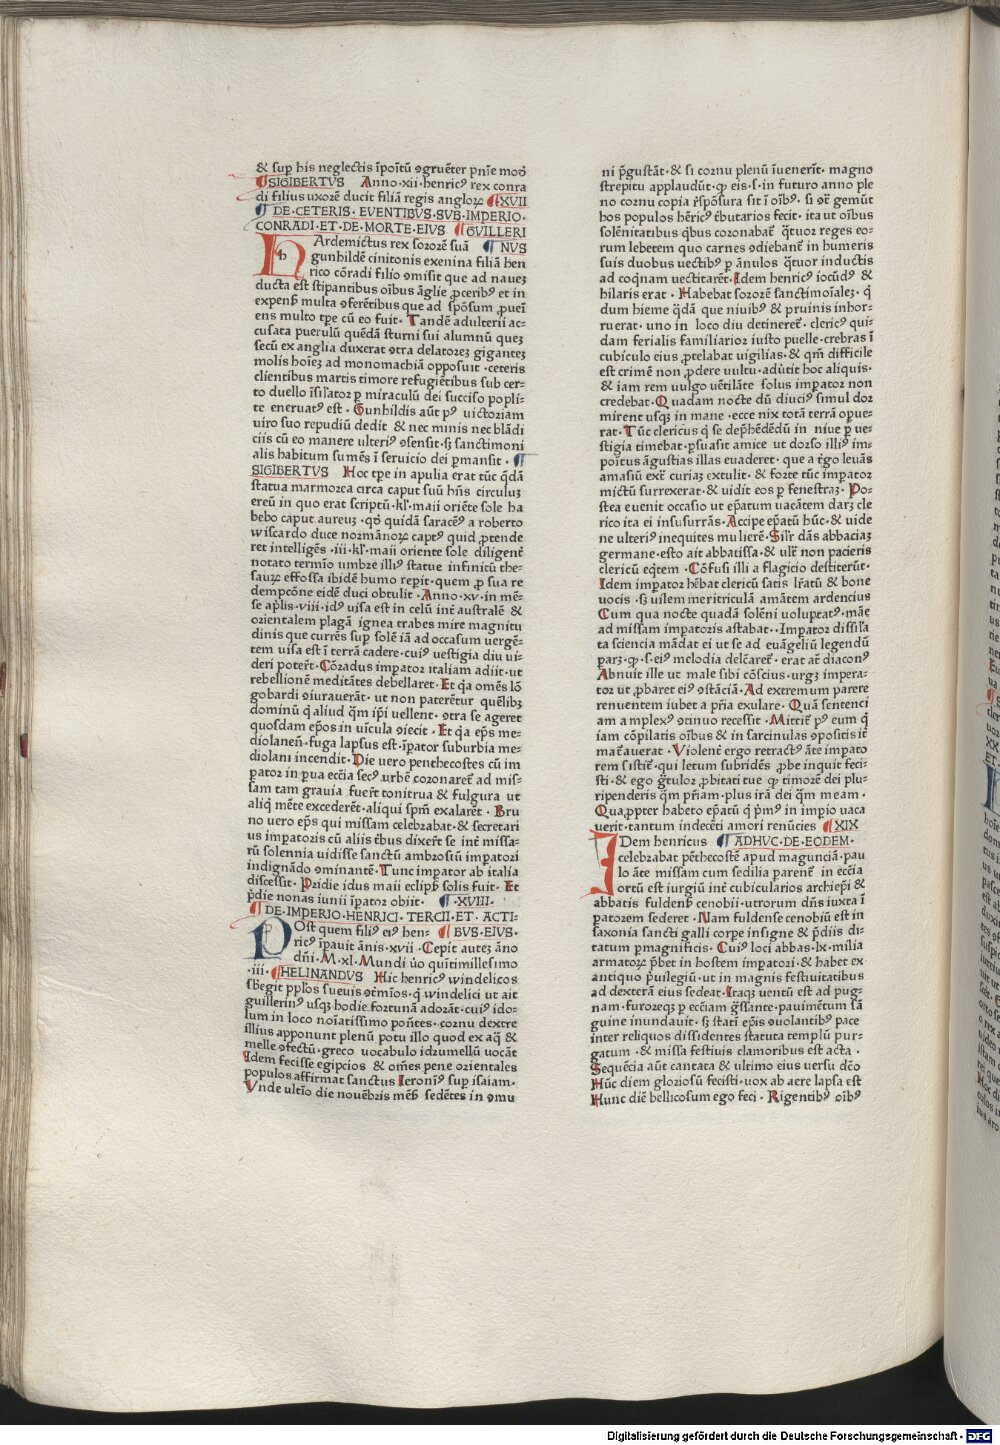 & sup his neglectis īpoītū ꝯgruēter pnīe modō
¶SIGIBERTVS Anno·xii·henricꝰ rex conra
di filius uxorē ducit filiā regis angloꝝ ¶XVII
¶ DE·CETERIS·EVENTIBVS·SVB·IMPERIO·
CONRADI·ET·DE·MORTE·EIVS ¶GVILLERI
HArdemictus rex sororē suā ¶NVS
gunhildē cinitonis exenina filiā hen
rico cōradi filio ꝯmisit que ad nauez
ducta est stipantibus oībus āglie ꝓceribꝰ et in
expensꝭ multa ꝯferētibus que ad spōsum ꝓueī
ens multo tꝑe cū eo fuit· Tandē adulterii ac⸗
cusata puerulū quēdā sturni sui alumnū quez
secū ex anglia duxerat ꝯtra delatorez gigantez
molis hoiez ad monomachiā opposuit ·ceteris
clientibus martis timore refugiētibus sub cer⸗
to duello īsilatoꝛ ꝑ miraculū dei succiso popli⸗
te eneruatꝰ est · Gunhildis aūt pꝰ uictoriam
uiro suo repudiū dedit & nec minis nec blādi
ciis cū eo manere ulteriꝰ ꝯsensit·sꝫ sanctimoni
alis habitum sumēs ī seruicio dei ꝑmansit · ¶
SIGIBERTVS Hoc tꝑe in apulia erat tūc qdā
statua marmorea circa caput suū hn̄s circuluz
ereū in quo erat scriptū·kl'·maii oriēte sole ha
bebo caput aureuz ·qđ quidā saracēꝰ a roberto
wiscardo duce normānoꝝ captꝰ quid ꝓtende
ret intelligēs ·iii·kl'·maii oriente sole diligent̄
notato termīo umbre illiꝰ statue infinitū the⸗
sauꝝ effossa ibidē humo repit·quem ꝓ sua re
dempcōne eidē duci obtulit ·Anno·xv·in mē⸗
se aplis·viii·idꝰ uisa est in celū int̄ australē &
orientalem plagā ignea trabes mire magnitu
dinis que currēs sup solē iā ad occasum uergē⸗
tem uisa est ī terrā cadere·cuiꝰ uestigia diu ui⸗
deri poter̄t·Cōradus impator italiam adiit·ut
rebellionē meditātes debellaret·Et qa omēs lō
gobardi ꝯiurauerāt·ut non paterētur quēlibꝫ
dominū q aliud qm ip̄i uellent·ꝯtra se ageret
quosdam ep̄os in uīcula ꝯiecit·Et qa ep̄s me⸗
diolaneñ·fuga lapsus est·īpator suburbia me⸗
diolani incendit·Die uero penthecostes cū im
pator in ꝑua ecc̄ia secꝰ urbē coronaret̄ ad mis⸗
sam tam grauia fuer̄t tonitrua & fulgura ut
aliq mēte excederēt·aliqui spm̄ exalarēt · Bru
no uero ep̄s qui missam celebrabat·& secretari
us impatoris cū aliis ēbus dixer̄t se int̄ missa⸗
rū solennia uidisse sanctū ambrosiū impatori
indignādo ꝯminantē·Tunc impator ab italia
discessit· Pridie idus maii eclipsꝭ solis fuit· Et
p̄die nonas iunii īpator obiit· ¶·XVIII·
¶ DE·IMPERIO·HENRICI·TERCII·ET·ACTI⸗
POst quem filiꝰ eiꝰ hen⸗ ¶BVS·EIVS·
ricꝰ īpauit ānis·xvii·Cepit autez āno
dn̄i·M·xl·Mundi ūo quītimillesimo
·iii· ¶HELINANDVS Hic henricꝰ windelicos
sbegit pplos sueuis ꝯtmīos·q windelici ut ait
guillerinꝰ usqꝫ hodie fortunā adorāt·cuiꝰ ido⸗
lum in loco noīatissimo pon̄tes·cornu dextre
illius apponunt plenū potu illo quod ex aq̄ &
melle ꝯfectū·greco uocabulo idzumellū uocāt
Idem fecisse egipcios & om̄es pene orientales
populos affirmat sanctus Ieronīꝰ sup isaiam·
Vnde ultīo die nouēbris mēsꝭ sedētes in ꝯmu
ni p̄gustāt·& si cornu plenū īuenerīt· magno
strepitu applaudūt·ꝙ eis·s·in futuro anno ple
no cornu copia r̄sposura sit ī oībꝰ· si ꝯͣ gemūt
hos populos hēricꝰ tbutarios fecit·ita ut oībus
solēnitatibus qbus coronabat̄ qtuor reges eo⸗
rum lebetem quo carnes ꝯdiebant̄ in humeris
suis duobus uectibꝰ ꝑ ānulos qtuor inductis
ad coqnam uectitarēt·Idem henricꝰ iocūdꝰ &
hilaris erat · Habebat sororē sanctimoīalez·q
dum hieme qdā que niuibꝰ & pruinis inhor⸗
ruerat·uno in loco diu detineret̄·clericꝰ qui⸗
dam ferialis familiarioꝛ iusto puelle·crebras ī
cubiculo eius ꝓtelabat uigilias·& qm̄ difficile
est crimē non ꝓdere uultu·aduītit hoc aliquis·
& iam rem uulgo uētilāte solus impator non
credebat·Quadam nocte dū diuciꝰ simul dor
mirent usqꝫ in mane·ecce nix totā terrā opue⸗
rat·Tūc clericus q se dephēdēdū in niue ꝑ ue⸗
stigia timebat·ꝑsuasit amice ut dorso illiꝰ im⸗
poītus āgustias illas euaderet·que a tgo leuās
amasiū extͣ curiaz extulit·& forte tūc impator
mictū surrexerat·& uidit eos ꝑ fenestraz·Po⸗
stea euenit occasio ut ep̄atum uacātem darꝫ cle
rico ita ei insusurrās·Accipe ep̄atū hūc·& uide
ne ulteriꝰ inequites mulierē·Silr̄ dās abbaciaz
germane·esto ait abbatissa·& ulr̄ non pacieris
clericū eqtem·Cōfusi illi a flagicio destiterūt·
Idem impator hēbat clericū satis lr̄atū & bone
uocis·sꝫ uilem meritriculā amātem ardencius
Cum qua nocte quadā solēni uoluptatꝰ·māe
ad missam impatoris astabat··Impator dissīla
ta sciencia mādat ei ut se ad euāgeliū legendū
parꝫ·ꝙ·s·eiꝰ melodia delcāret̄·erat at̄ diaconꝰ
Abnuit ille ut male sibi cōscius·urgꝫ impera⸗
tor ut ꝓbaret eiꝰ ꝯstāciā·Ad extremum parere
renuentem iubet a pr̄ia exulare·Quā sentenci
am amplexꝰ ꝯtinuo recessit·Mittit̄ pꝰ eum q
iam cōpilatis oībus & in sarcinulas ꝯpositis it̄
mat̄auerat·Violent̄ ergo retractꝰ āte impato
rem sistit̄·qui letum subridēs ꝓbe inquit feci⸗
sti·& ego gtulor ꝓbitati tue q timorē dei plu⸗
ripenderis qm pr̄iam·plus irā dei qm meam·
Quappter habeto ep̄atū q pmꝰ in impio uaca
uerit·tantum indecēti amori renūcies ¶XIX
IDem henricus ¶ADHVC·DE·EODEM·
celebrabat pēthecostē apud magunciā·pau
lo āte missam cum sedilia parent̄ in ecc̄ia
ortū est iurgiū int̄ cubicularios archiep̄i &
abbatis fuldensꝭ cenobii·utrorum dn̄s iuxta ī
patorem sederet·Nam fuldense cenobiū est in
saxonia sancti galli corpe insigne & p̄diis di⸗
tatum ꝑmagnificis·Cuiꝰ loci abbas·lx·milia
armatoꝝ p̄bet in hostem impatori·& habet ex
antiquo p̄uilegiū·ut in magnis festiuitatibus
ad dexterā eius sedeat·Itaqꝫ uentū est ad pug⸗
nam·furoreqꝫ ꝑ ecc̄iam gssante·pauimētum sā
guine inundauit·sꝫ stati ep̄is ꝯuolantibꝰ pace
inter reliquos dissidentes statuta templū pur⸗
gatum·& missa festiuis clamoribus est acta·
Sequēcia aūt cantata & ultimo eius uersu dc̄o
Hūc diem gloriosū fecisti·uox ab aere lapsa est
Hunc diē bellicosum ego feci·Rigentibꝰ oībꝰ
Digitalisierung gefördert durch die Deutsche Forschungsgemeinschaft - DFG